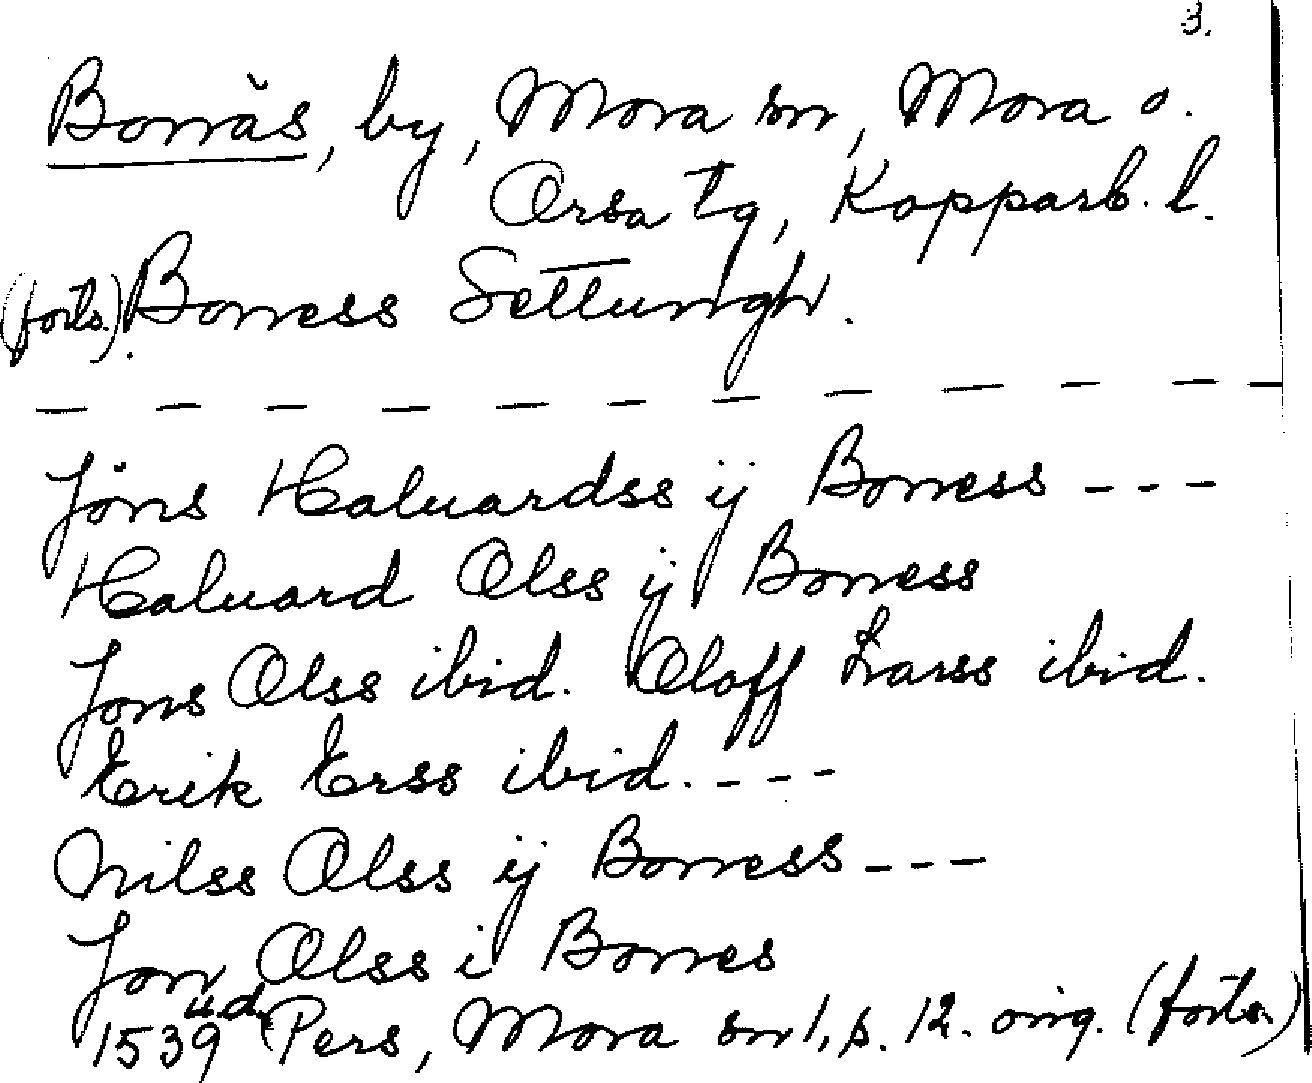 3.
Bonäs, by, Mora sn, Mora o.
Orsa tg, Kopparb. l.
(forts.) Bonness Settungh.
– – – – – – – – – – – –
Jöns Haluardss ij Bonness - - -
Haluard Olss ij Boness
Jons Olss ibid. Oloff Larss ibid.
Erik Erss ibid. - - - -
Nilss Olss ij Bonness - - -
Jon Olss i Bonnes
1539 u.d. Pers, Mora sn 1, s. 12. orig. (forts.)